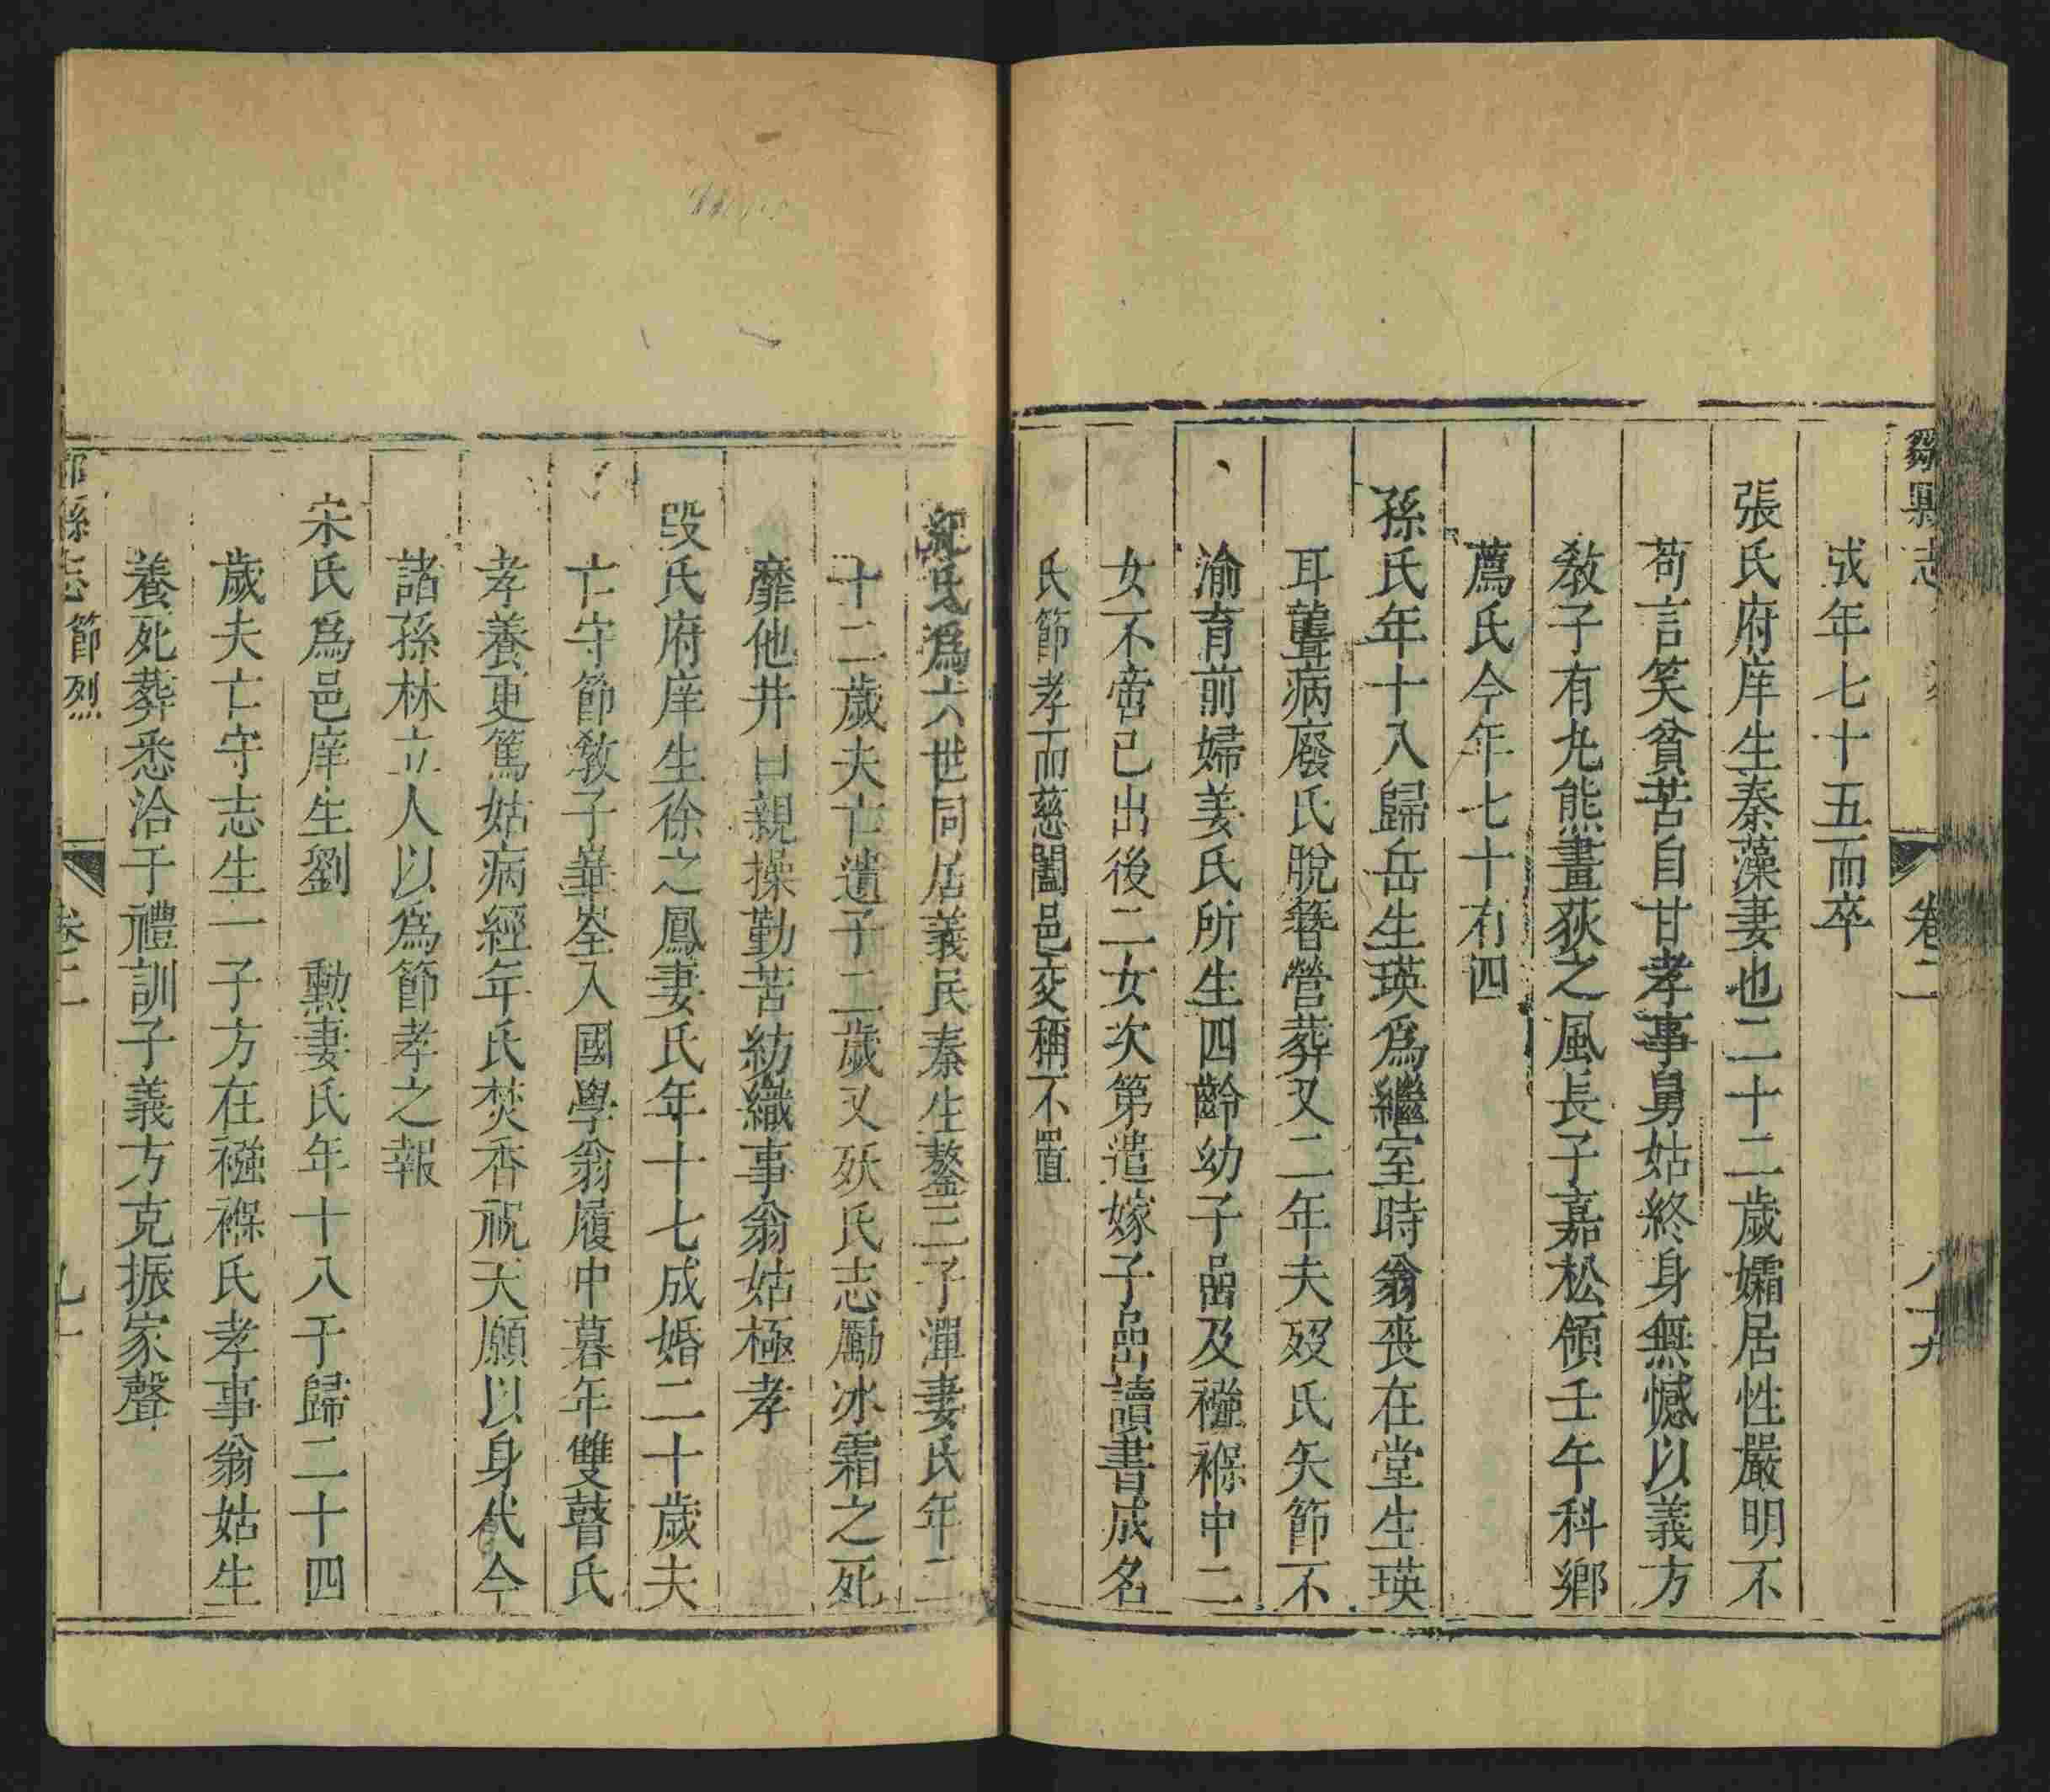 鄒縣志
卷二
八十九
成年七十五而卒
張氏府庠生秦藻妻也二十二歲孀居性嚴明不
苟言笑貧苦自甘孝事舅姑終身無憾以義方
教子有丸熊畫荻之風長子嘉松領壬午科鄉
薦氏今年七十有四
孫氏年十八歸岳生瑛爲繼室時翁喪在堂生瑛
耳聾病廢氏脫簪營葬又二年夫歿氏矢節不
渝育前婦姜氏所生四齡幼子嵒及襁褓中二
女不啻己出後二女次第遣嫁子嵒讀書成名
氏節孝而慈闔邑交稱不置
紀氏爲六世同居義民秦生鏊三子潬妻氏年二
十二歲夫亡遺子二歲又殀氏志勵冰霜之死
靡他井臼親操勤苦紡織事翁姑極孝
段氏府庠生徐之鳳妻氏年十七成婚二十歲夫
亡守節敎子崋峑入國學翁履中暮年雙瞽氏
孝養更篤姑病經年氏焚香祝天願以身代今
諸孫林立人以爲節孝之報
宋氏爲邑庠生劉 勳妻氏年十八于歸二十四
歲夫亡守志生一子方在襁褓氏孝事翁姑生
養死葬悉洽于禮訓子義方克振家聲
縣志 節烈
卷二